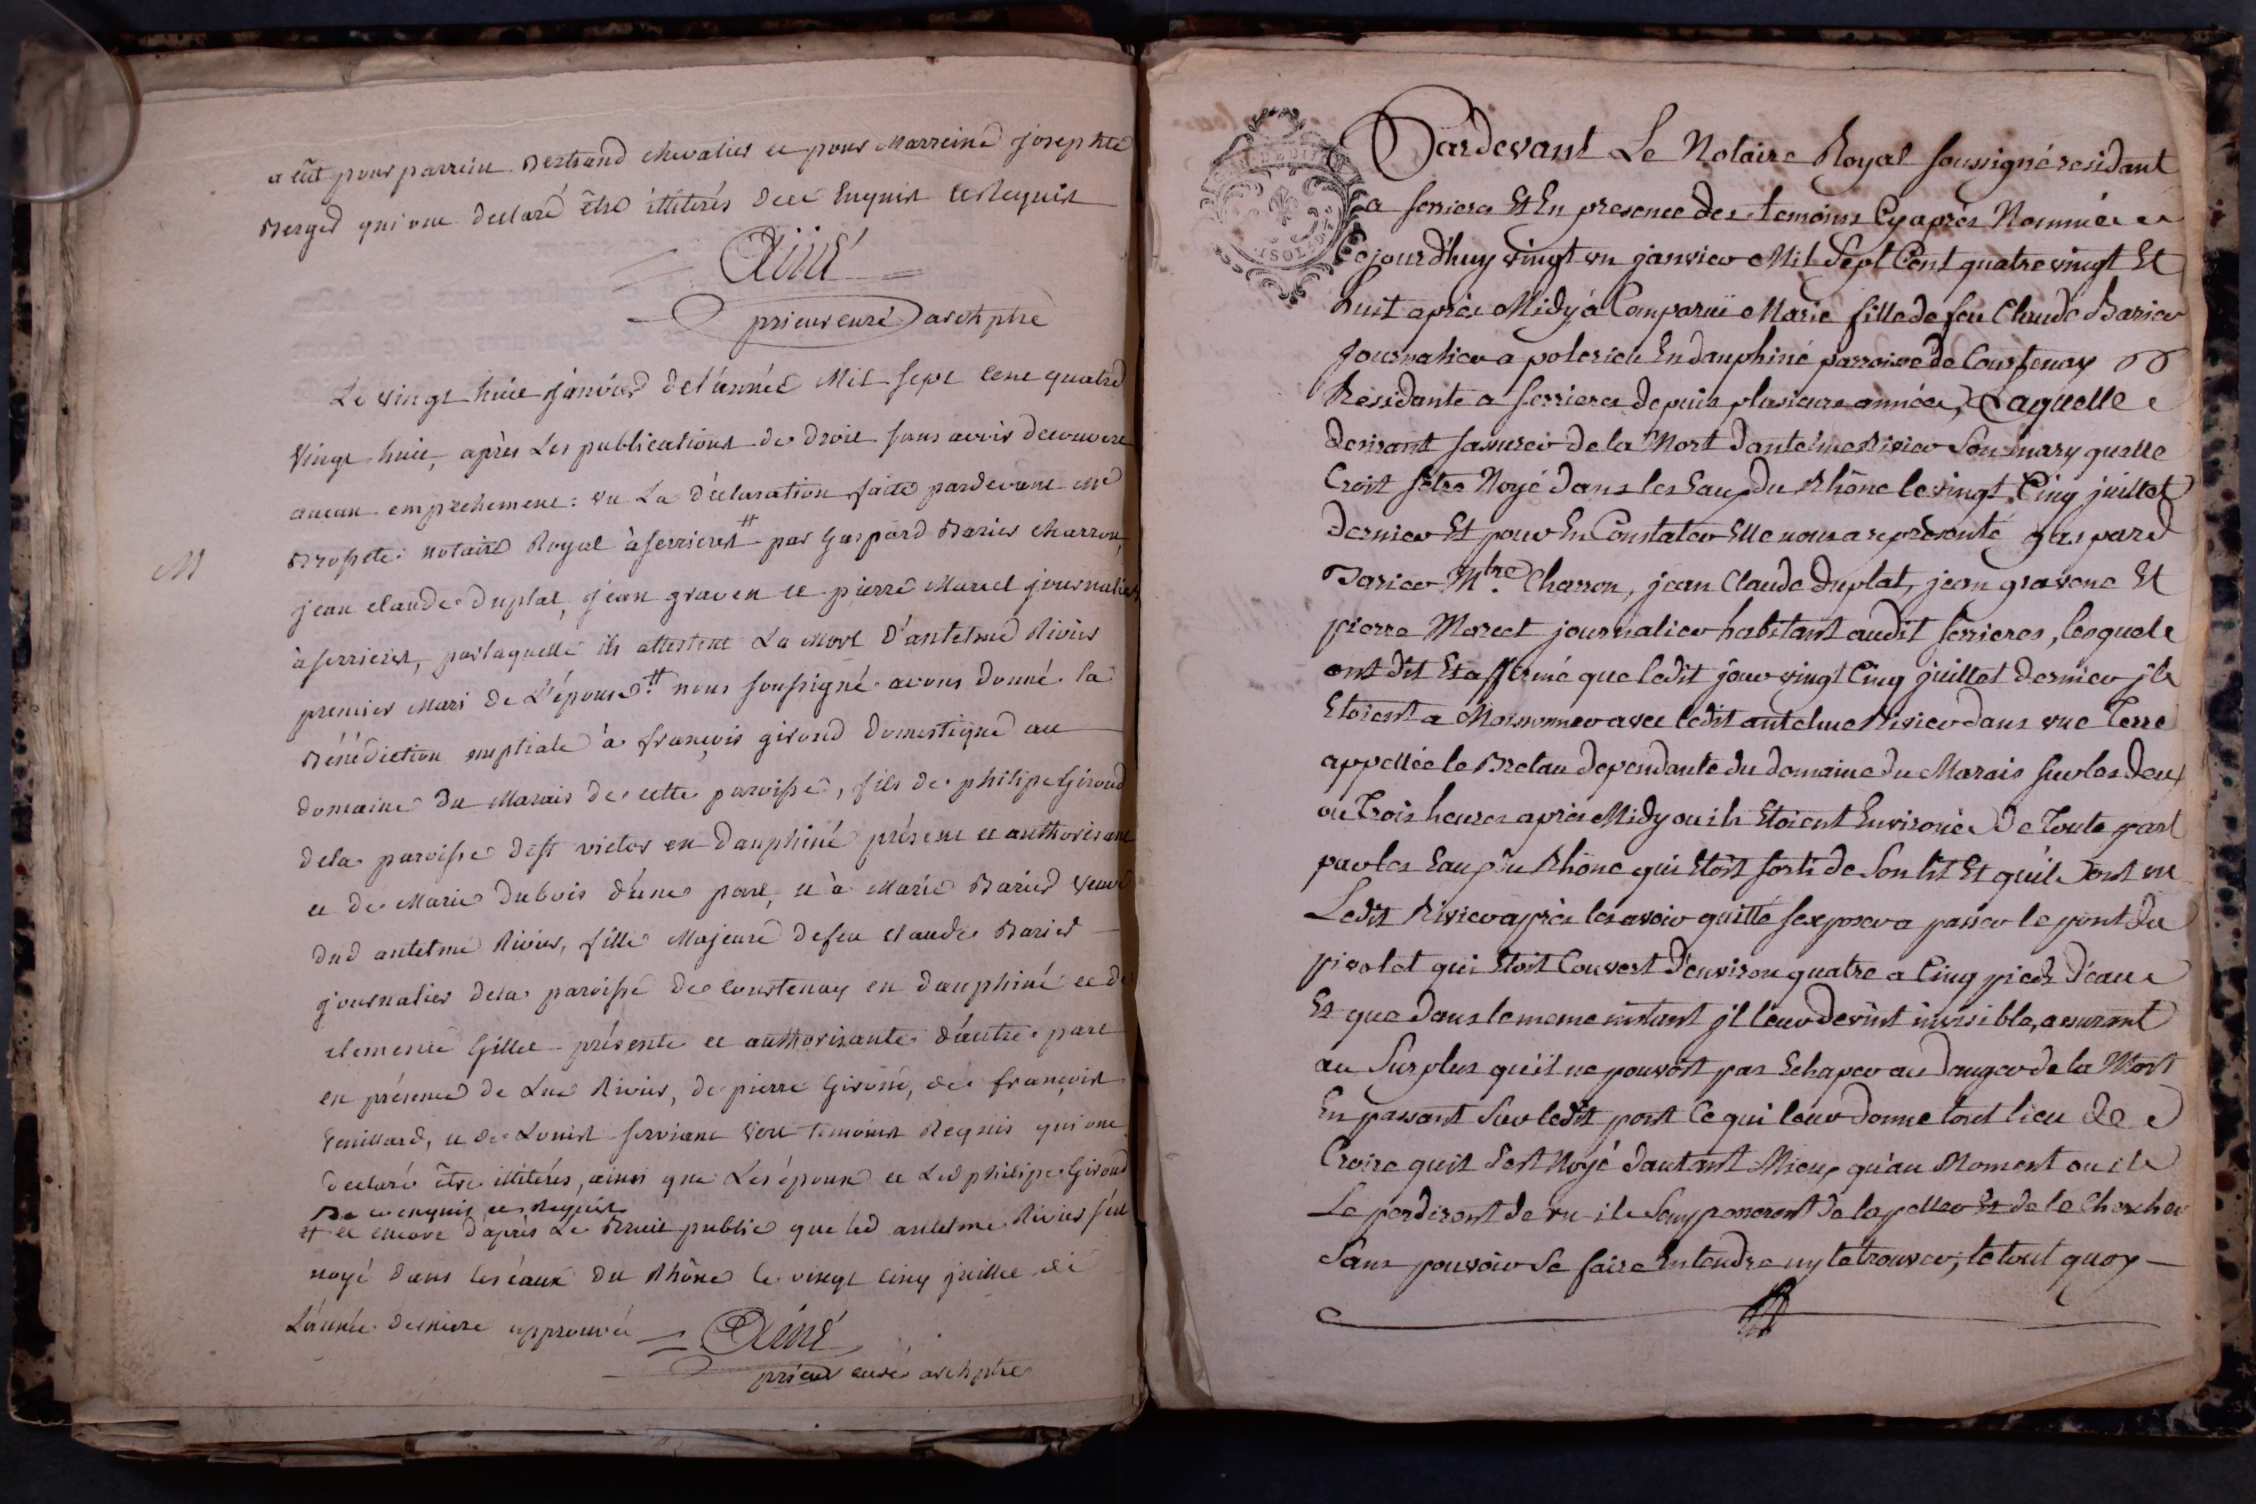 a eüt pour parrein Bertrand chevalier et pour Marreine Josephte
Berger qui ont declaré être illiterés dece Enquis et Requis
Aimé
prieur curé archptre
Le vingt huit janvier de l'année Mil sept cent quatre
Vingt huit, après Les publications de droit sans avoir decouvert
aucun empechement: vu La déclaration faite pardevant me
notaire Royal à serrieres # par Gaspard Barier charron,
jean claude duplat, jean graven et pierre Marcel journaliers
à serrieres, par laquelle ils attestent La Mort d'antelme Rivier
premier Mari de L'épouse # nous soussigné avons donné la
Bénédiction nuptiale à françois giroud domestique au
domaine du Marais de cette paroisse, fils de philipe Giroud
dela paroisse de st victor en Dauphiné présent et authorisant
et de Marie Dubois d'une part, et à Marie Barier veuve
dud antelme Rivier, fille Majeure de feu claude Barier
journalier dela paroisse de courtenay en Dauphiné et de
clemence Gillet présente et authorisante d'autre part
en présence de Luc Rivier, de pierre Giroud, de françois
et de Louis servient temoins Requis qui ont
declaré être illiterés, ainsi que Les époux et Led philipe Giroud
De ce enquis et Requis
# et encore d'après Le Bruit public que led antelme Rivier s'est
noyé dans les éaux du Rhône le vingt cinq juillet de
L'année derniere approuvé Aimé
prieur curé archptre
M
Pardevant Le Notaire Royal soussigné residant
a serrieres Et En presence des temoins Cy après Nommés
Cejourdhuy vingt un janvier Mil Sept Cent quatre vingt Et
huit après Midy a Comparüe Marie fille de feu Claude Barier
Journalier a polerieu En dauphiné parroisse de Courtenay
Residante a serrieres depuis plusieurs années, Laquelle
desirant sassurer de la Mort dantelme Rivier Son mary quelle
Croit setre Noyé dans les Eaux du Rhône le vingt Cinq juillet
dernier Et pour En Constater Elle nous a représenté gaspard
Barier Mtre. Charron, jean Claude duplat, jean gravene Et
pierre Marcet journalier habitant audit serrieres, lesquels
ont dit Et affirmé que ledit jour vingt Cinq juillet dernier jls
Etoient a Moissonner avec ledit antelme Rivier dans une Terre
appellée le Bretau dependante du domaine du Marais sur les deux
ou Trois heures après Midy ou ils Etoient Environés de toute part
par les Eaux du Rhône qui Etoit sorti de Son lit Et quils ont vu
Ledit Rivier après les avoir quitté sexposer a passer le pont du
pivolet qui Etoit Couvert d'environ quatre a Cinq pieds d'eau
Et que dans le meme instant jl leur devint invisible, assurant
au Surplus qu'il ne pouvoit pas Echaper au danger de la Mort
En passant Sur ledit pont Ce qui leur donne tout lieu de
Croire quil Sest Noyé dautant Mieux qu'au Moment ou ils
Le perdirent de vu ils Sempresserent de lapeller Et de le Chercher
Sans pouvoir Se faire Entendre ny le trouver, le tout quoy